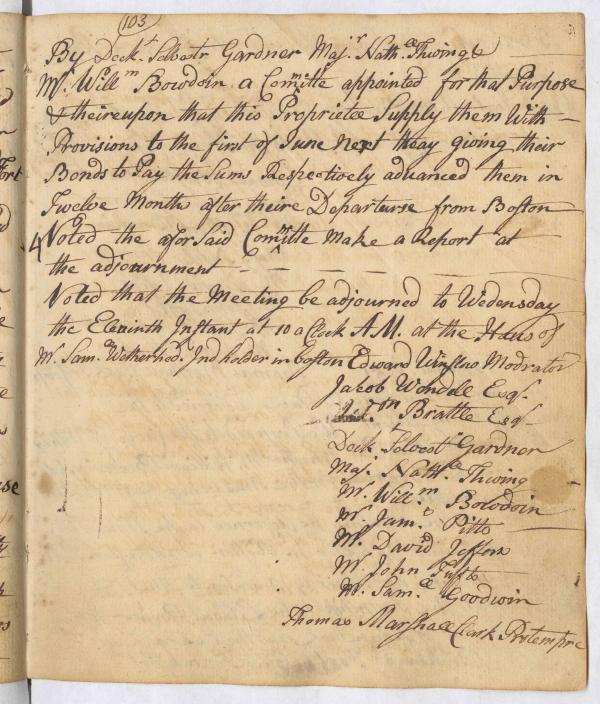 103
By Deck.n Silvestr Gardner Maj.r Nath.ll Thwing &
Mr. Will.m Bowdoin a Com.mtte appointed for that Purpose
& theireupon that this Proprietee Supply them With
Provisions to the first of June next theay giving their
Bonds to Pay the Sums Respectively advanced them in
Twelve Months after theire Departurse from Boston
4 Voted the afor Said Com.mtte Make a Report at
the adjournment
Voted that the Meeting be adjourned to Wedensday
the Elevinth Instant at 10 a Clock A.M. at the Hous of
Mr. Sam.ll Wetherhod. Ind holder in boston Edward Winslno Modrator
Jacob Wendell Esq.
Brattle Esq.
Deck. Silvest. Gardner
Maj. Nath.ll Thwing
Mr. Will.m Bowdoin
Mr. Jam.s Pitts
Mr. David Jeffers
Mr. John Tufts
Mr. Sam.ll Goodwin
Thomas Marshall Clark Protempre